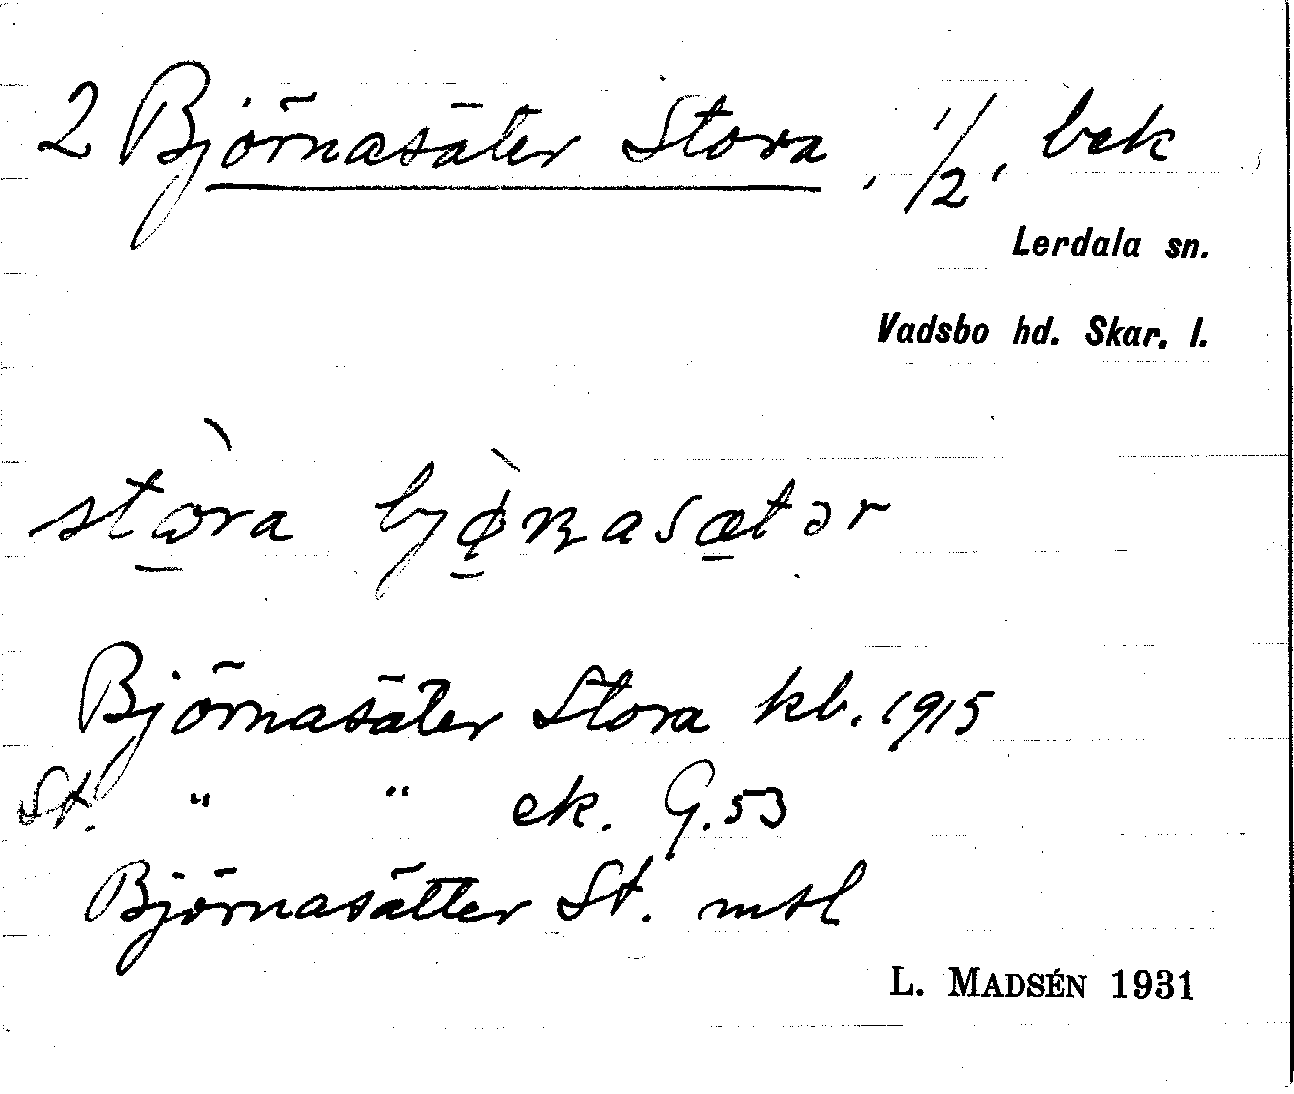 2 Björnasäter Stora, 1/2, bek
Lerdala sn.
Vadsbo hd. Skar. l.
stɷ̱̀ra bjø̱̀ɳasæ̱tər
Björnasäter Stora kb. 1915
St. " " ek. G. 53
Björnasätter St. mtl
L. MADSÉN 1931